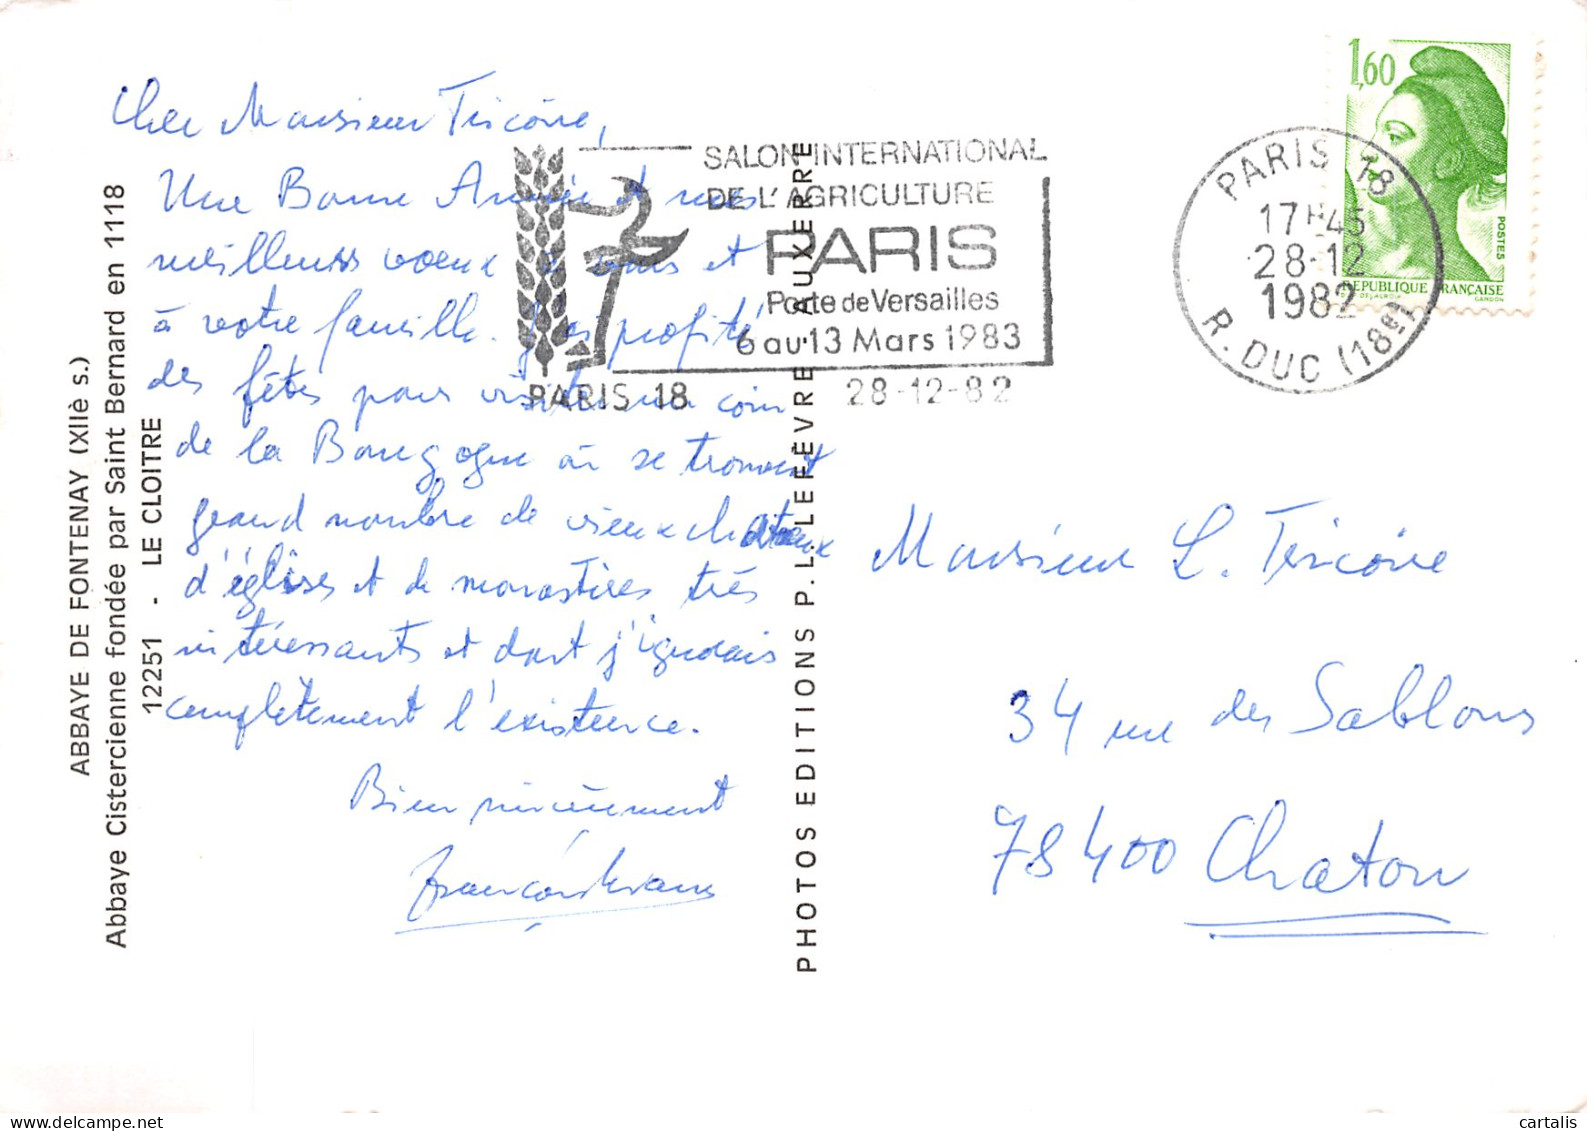 ABBAYE DE FONTENAY (XIIè s.)
Abbaye Cistercienne fondée par Saint Bernard en 1118
12251 - LE CLOITRE
Cher Monsieur Tricoire,
Une Bonne Année et mes
meilleurs voeux à vous et
à votre famille. J'ai profité
des fêtes pour visiter un coin
de la Bourgogne où se trouvent
grand nombre de vieux chateaux
d'églises et de monastères très
intéressants et dont j'ignorais
complètement l'existence.
Bien sincèrement
PHOTOS EDITIONS P. L. LEFEVRE - AUXERRE
SALON INTERNATIONAL
DE L'AGRICULTURE
PARIS
Porte de Versailles
6 au 13 Mars 1983
PARIS 18
28-12-82
PARIS 18
17H45
28-12
1982
R. DUC (18e)
1,60
POSTES
REPUBLIQUE FRANÇAISE
GANDON
Monsieur L. Tricoire
34 rue des Sablons
78400 Chatou
cartalis